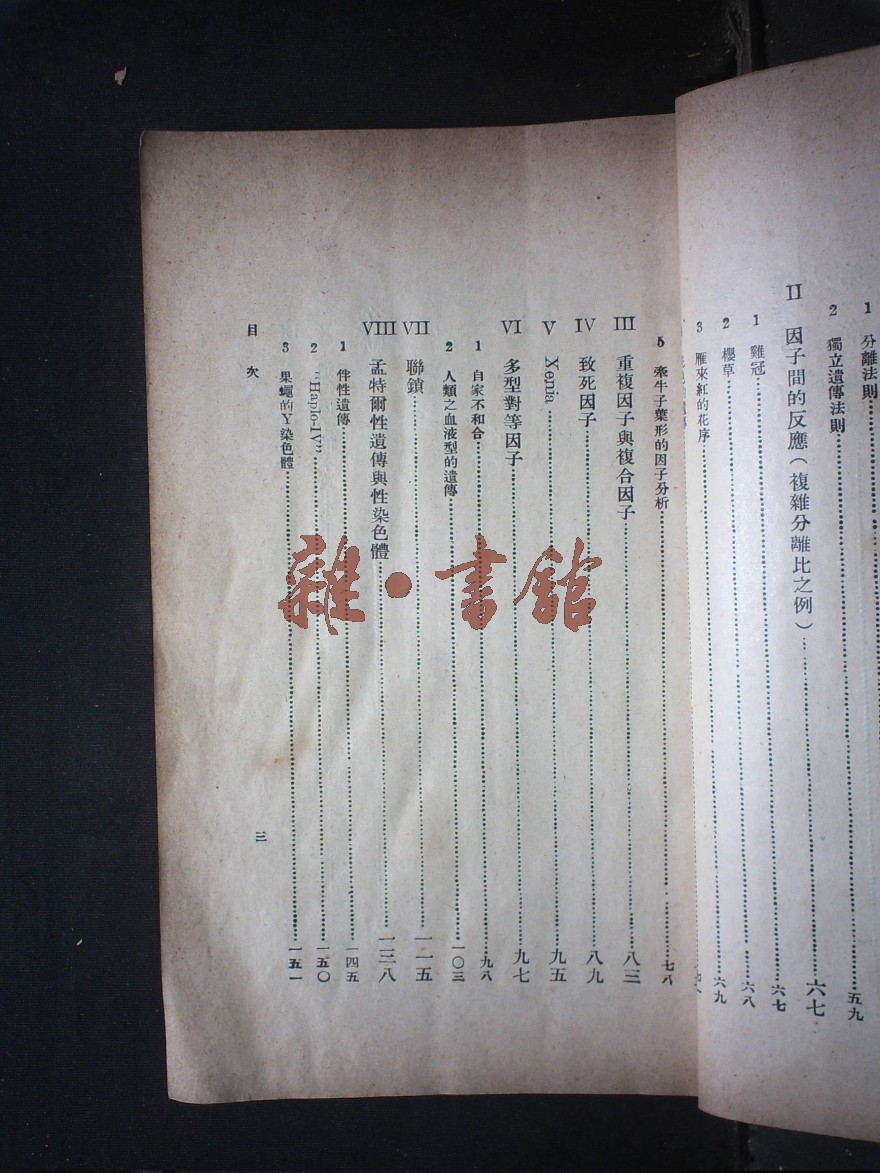 1 分離法則……五九
2 獨立遺傳法則
II 因子間的反應（複雜分離比之例）……六七
1 雞冠……六七
2 櫻草……六八
3 雁來紅的花序……六九
5 牽牛子葉形的因子分析……七八
III 重複因子與複合因子……八三
IV 致死因子……八九
V Xenia……九五
VI 多型對等因子……九七
1 自家不和合……九八
2 人類之血液型的遺傳……一〇三
VII 聯鎖……一一五
VIII 孟特爾性遺傳與性染色體……一三八
1 伴性遺傳……一四五
2 "Haplo-IV"……一五〇
3 果蠅的Y染色體……一五一
目次
三
雜·書館